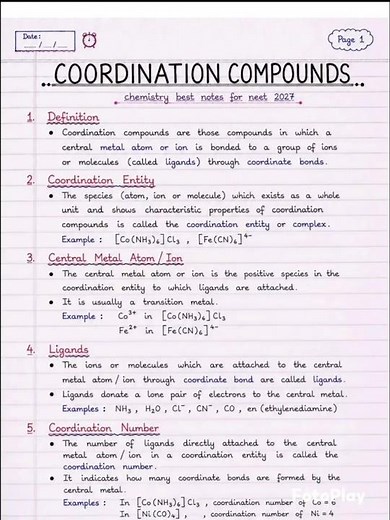 Date:
__ / __ / __
Page 1
COORDINATION COMPOUNDS
chemistry best notes for neet 2027
1. Definition
• Coordination compounds are those compounds in which a
central metal atom or ion is bonded to a group of ions
or molecules (called ligands) through coordinate bonds.
2. Coordination Entity
• The species (atom, ion or molecule) which exists as a whole
unit and shows characteristic properties of coordination
compounds is called the coordination entity or complex.
Example : [Co(NH₃)₆]Cl₃ , [Fe(CN)₆]⁴⁻
3. Central Metal Atom/Ion
• The central metal atom or ion is the positive species in the
coordination entity to which ligands are attached.
• It is usually a transition metal.
Example : Co³⁺ in [Co(NH₃)₆]Cl₃
Fe²⁺ in [Fe(CN)₆]⁴⁻
4. Ligands
• The ions or molecules which are attached to the central
metal atom/ion through coordinate bond are called ligands.
• Ligands donate a lone pair of electrons to the central metal.
Examples : NH₃ , H₂O , Cl⁻ , CN⁻ , CO , en (ethylenediamine)
5. Coordination Number
• The number of ligands directly attached to the central
metal atom/ion in a coordination entity is called the
coordination number.
• It indicates how many coordinate bonds are formed by the
central metal.
Examples : In [Co(NH₃)₆]Cl₃ , coordination number of Co = 6
In [Ni(CO)₄] , , coordination number of Ni = 4
FotoPlay